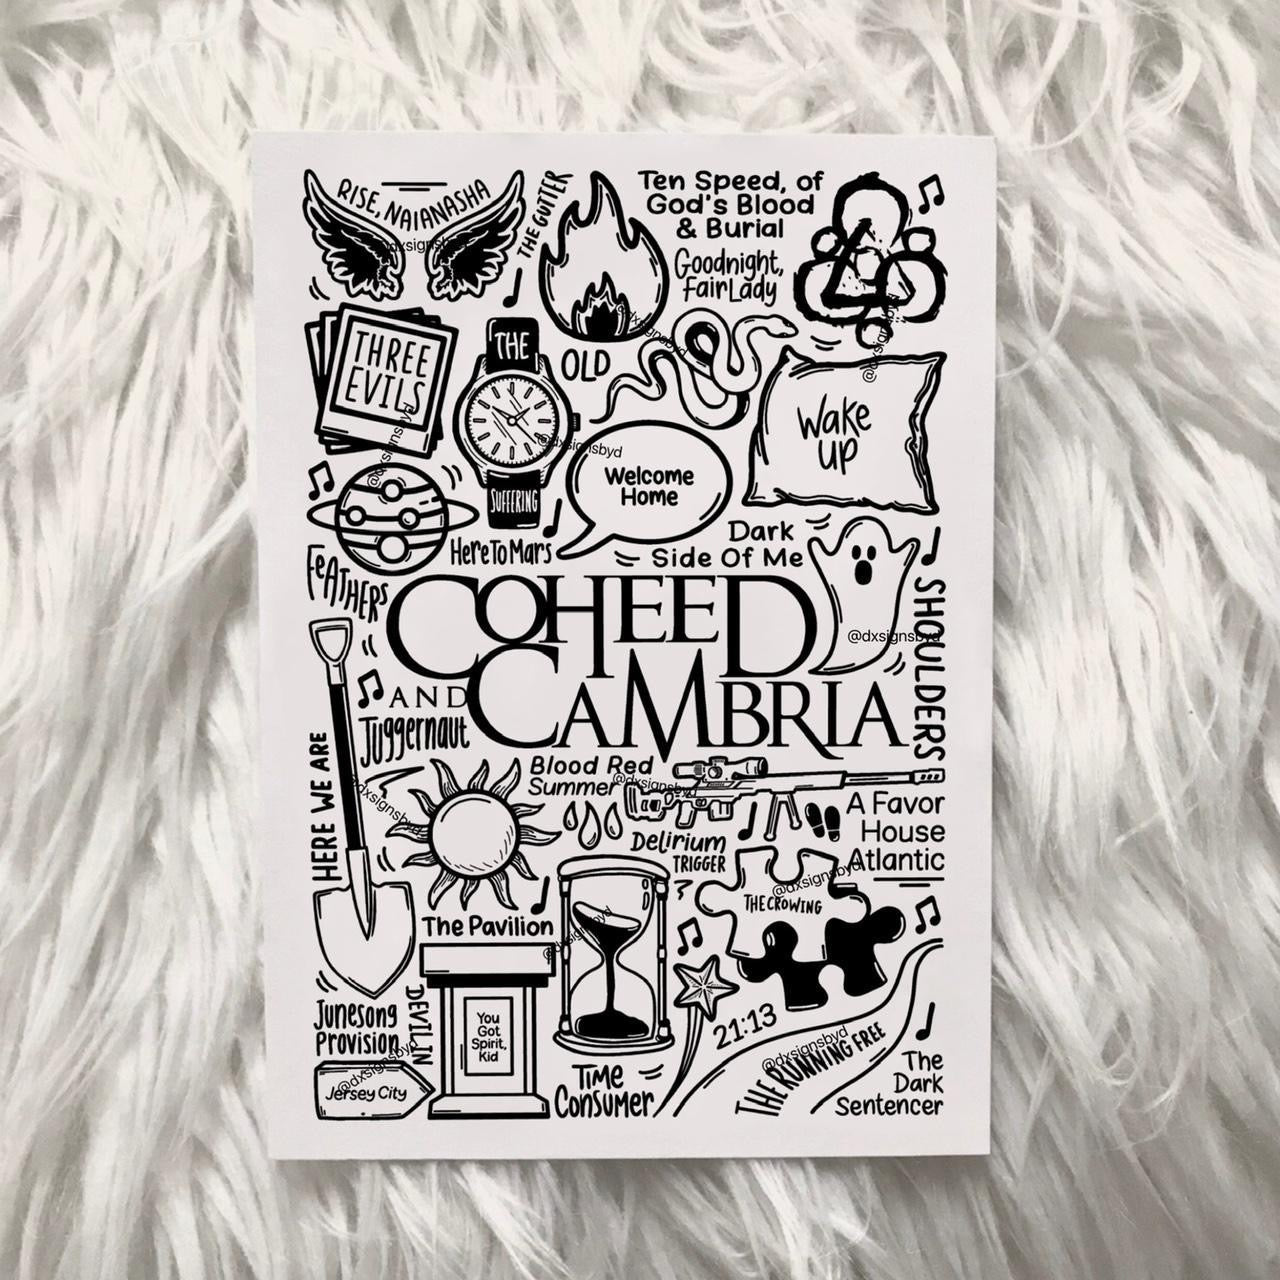 RISE, NAIANASHA
THE GUTTER
Ten Speed, of
God's Blood
& Burial
Goodnight,
Fair Lady
@dxsignsbyd
@dxsignsbyd
@dxsignsbyd
THREE
EVILS
@dxsignsbyd
THE
OLD
SUFFERING
@dxsignsbyd
Wake
up
Welcome
Home
Here To Mars
Dark
Side Of Me
FEATHERS
@dxsignsbyd
SHOULDERS
COHEED
AND
CAMBRIA
Juggernaut
HERE WE ARE
@dxsignsbyd
Blood Red
Summer
@dxsignsbyd
A Favor
House
Atlantic
Delirium
TRIGGER
@dxsignsbyd
THE CROWING
The Pavilion
@dxsignsbyd
Junesong
Provision
DEVIL IN
@dxsignsbyd
Jersey City
You
Got
Spirit,
Kid
21:13
@dxsignsbyd
THE RUNNING FREE
Time
Consumer
The
Dark
Sentencer